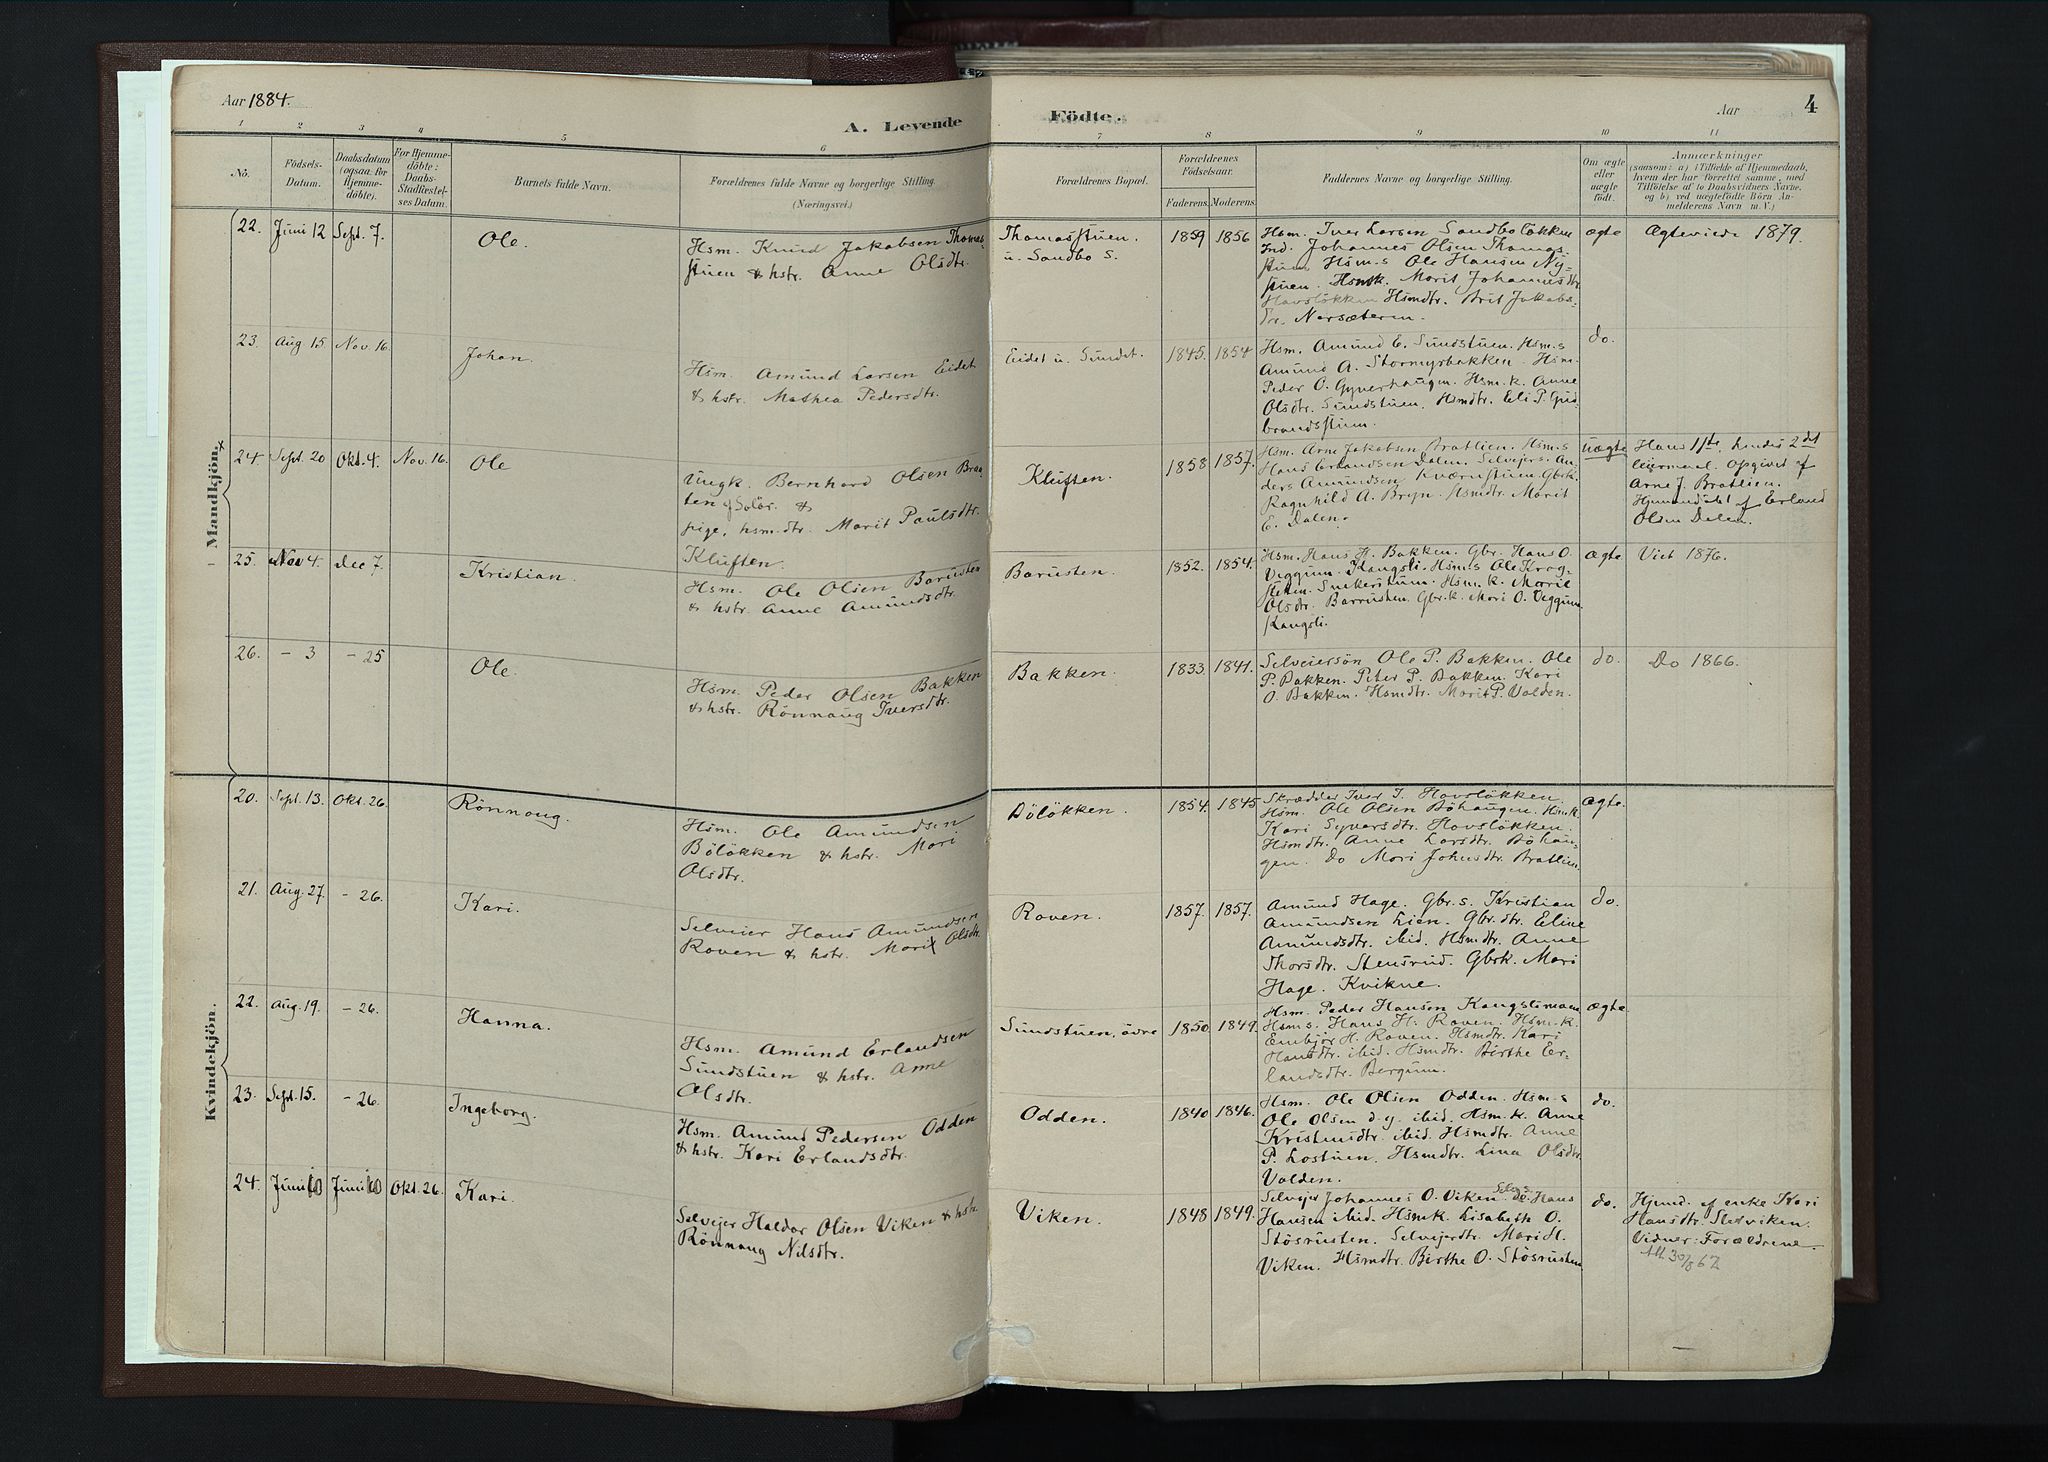 Aar 1884.
A. Levende
Födte.
Aar
4
1 2 3 4 5 6 7 8 9 10 11
No.
Födsels-
Datum.
Daabsdatum
(ogsaa for
Hjemme-
döbte).
For Hjemme-
döbte:
Daabs-
Stadfæstel-
ses Datum.
Barnets fulde Navn.
Forældrenes fulde Navne og borgerlige Stilling.
(Næringsvei.)
Forældrenes Bopæl.
Forældrenes
Födselsaar.
Faderens. Moderens.
Faddernes Navne og borgerlige Stilling.
Om ægte
eller
uægte
födt.
Anmærkninger
(saasom: a) i Tilfælde af Hjemmedaab,
hvem der har forrettet samme, med
Tilföielse af to Daabsvidners Navne.
og b) ved uægtefödte Börn An-
melderens Navn m. V.)
Mandkjön.
22. Juni 12 Sept. 7.
Ole.
Hsm. Knud Jakobsen Thomas-
stuen & hstr. Anne Olsdtr.
Thomasstuen.
u. Sandbo S.
1859 1856
Hsm. Iver Larsen Sandboløkken
Ind. Johannes Olsen Thomas
stuen Hsm.s Ole Hansen Ny-
stuen. Hsmk. Marit Johannesdtr
Havsløkken Hsmdtr. Brit Jakobs-
dtr. Norsæteren.
ægte
Ægteviede 1879.
23. Aug 15. Nov. 16.
Johan.
Hsm. Amund Larsen Eidet
& hstr. Mathea Pedersdtr.
Eidet u. Sundet.
1845. 1854
Hsm. Amund E. Sundstuen. Hsm.s
Amund A. Stormyrbakken. Hsm.
Peder O. Gyverhaugen. Hsm.k. Anne
Olsdtr. Sundstuen. Hsmdtr. Eli P. Gud
brandsstuen.
do.
24. Sept. 20 Okt. 4. Nov. 16.
Ole
Ungk. Bernhard Olsen Braa
ten f Solör. &
pige, hsm.dtr. Marit Paulsdtr.
Kluften.
Kluften.
1858 1857.
Hsm. Arne Jakobsen Bratlien. Hsm.s
Hans Erlandsen Dalen. Selvejers. An-
ders Amundsen Kværnstuen Gbrk.
Ragnhild A. Bryn. Hsmdtr. Marit
E. Dalen.
uægte
Hans 1ste, hendes 2det
leiermaal. Opgivet af
Arne J. Bratlien.
Hjemmdøbt af Erland
Olsen Dalen.
25. Nov 4. Dec 7.
Kristian.
Hsm. Ole Olsen Barusten
& hstr. Anne Amundsdtr.
Barusten.
1852. 1854.
Hsm. Hans H. Bakken. Gbr. Hans O.
Veggum. Kangsli. Hsm.s Ole Krog-
stetten. Snikerstuen. Hsm.k. Marit
Olsdtr. Barrusten. Gbr.k. Mari O. Veggum
Kangsli.
ægte
Viet 1876.
26. - 3 - 25
Ole.
Hsm. Peder Olsen Bakken
& hstr. Rönnaug Iversdtr.
Bakken.
1833. 1841.
Selveiersön Ole P. Bakken. Ole
P. Bakken. Peter P. Bakken. Kari
O. Bakken. Hsmdtr. Marit P. Volden.
do.
Do 1866.
Kvindekjön.
20. Sept. 13. Okt. 26
Rönnaug.
Hsm. Ole Amundsen
Böløkken & hstr. Mari
Olsdtr.
Böløkken.
1854. 1845
Skrædder Iver J. Hovsløkken.
Hsm. Ole Olsen Böhaugen. Hsm.k
Kari Syversdtr. Hovsløkken.
Hsmdtr. Anne Larsdtr. Böhau-
gen. Do Mari Johnsdtr. Bratlien.
ægte.
21. Aug. 27. - 26.
Kari.
Selveier Hans Amundsen
Roven & hstr. Marit Olsdtr.
Roven.
1857. 1857.
Amund Hage. Gbr.s. Kristian
Amundsen Lien. Gbr.dtr. Eline
Amundsdtr. ibid. Hsmdtr. Anne
Thorsdtr. Stensrud. Gbrk. Mari
Hage. Kvikne.
do.
22. Aug. 19. - 26.
Hanna.
Hsm. Amund Erlandsen
Sundstuen & hstr. Anne
Olsdtr.
Sundstuen, övre
1850. 1849.
Hsm. Peder Hansen Kangslimoen
Hsms. Hans H. Roven. Hsm.k.
Embjør H. Roven. Hsmdtr. Kari
Hansdtr. ibid. Hsmdtr. Birthe Er-
landsdtr. Bergum.
ægte
23. Sept. 15. - 26.
Ingeborg.
Hsm. Amund Pedersen Odden
& hstr. Kari Erlandsdtr.
Odden.
1840 1846.
Hsm. Ole Olsen Odden. Hsm.s
Ole Olsen d.y. ibid. Hsm.k. Anne
Kristensdtr. ibid. Hsmdtr. Anne
P. Lostuen. Hsmdtr. Lina Olsdtr.
Volden.
do.
24. Juni 10 Juni 10 Okt. 26.
Kari.
Selvejer Haldor Olsen Viken & hstr.
Rönnaug Nilsdtr.
Viken.
1848 1849.
Selvejer Johannes O. Viken. Hans
Hansen ibid. Hsmk. Lisabeth O.
Stösrusten. Selvejerdtr. Mari H.
Viken. Hsmdtr. Birthe O. Stösrusten
do.
Hjemd. af enke Kari
Hansdtr. Sletviken.
Vidner: Forældrene.